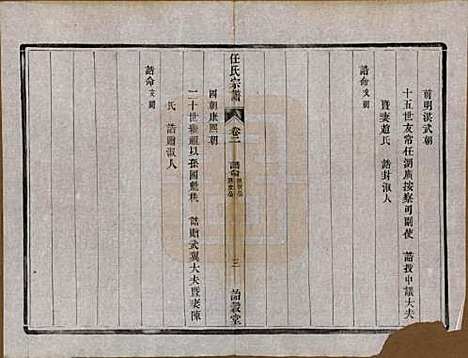 前明洪武朝
十五世友常任湖廣按察司副使　誥授中議大夫
曁妻趙氏　誥封淑人
誥命文闕
任氏宗譜
卷二　誥命
三
詒穀堂
國朝康熙朝
二十世　以孫國　　誥贈武翼大夫曁妻陳
氏　誥贈淑人
誥命文闕